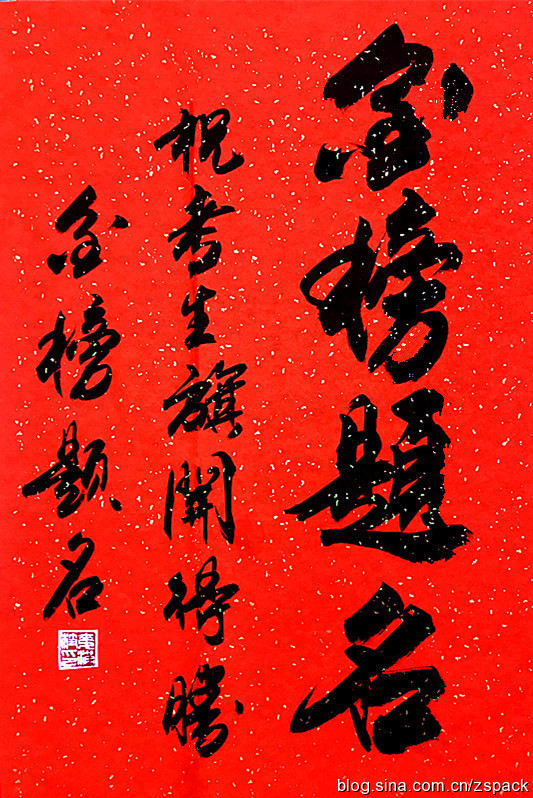 金榜題名
祝考生旗開得勝
金榜題名
blog.sina.com.cn/zspack